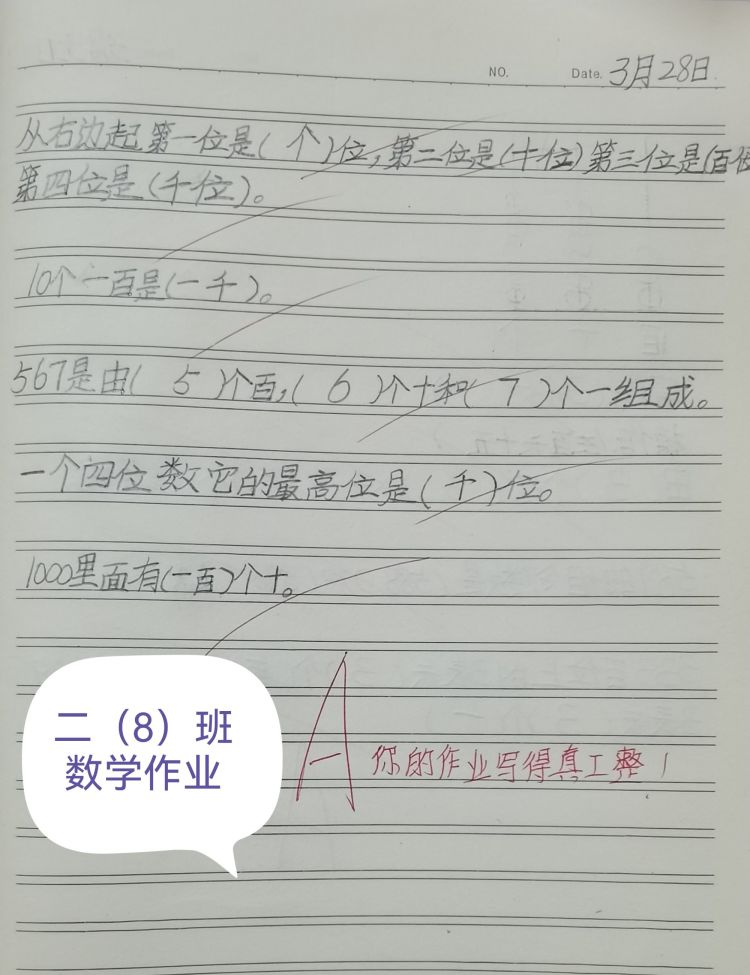 NO.
Date. 3月28日.
从右边起第一位是(个)位,第二位是(十位)第三位是(百位
第四位是(千位)。
10个一百是(一千)。
567是由( 5 )个百,( 6 )个十和( 7 )个一组成。
一个四位数它的最高位是(千)位。
1000里面有(一百)个十。
A
你的作业写得真工整!
二（8）班
数学作业